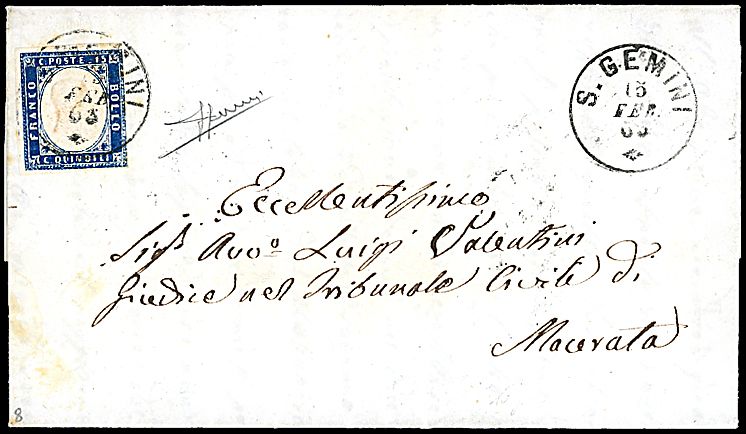 C. POSTE 15
FRANCO
BOLLO
C. QUINDICI
MINI
FEB
63
S. GEMINI
15
FEB.
63
Eccellentissimo
Sig.r Avv.o Luigi Valentini
Giudice nel Tribunale Civile di
Macerata
8